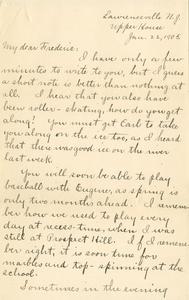 Lawrenceville N.J.
Upper House
Jan. 22, 1905
My dear Frederic:
I have only a few
minutes to write to you, but I guess
a short note is better than nothing at
all. I hear that you also have
been roller-skating, how do you get
along? You must get Carl to take
you along on the ice too, as I heard
that there was good ice on the river
last week.
You will soon be able to play
baseball with Eugene, as spring is
only two months ahead. I remem-
ber how we used to play every
day at recess-time, when I was
still at Prospect Hill. If I remem-
ber right, it is soon time for
marbles and top-spinning at the
school.
Sometimes in the evening